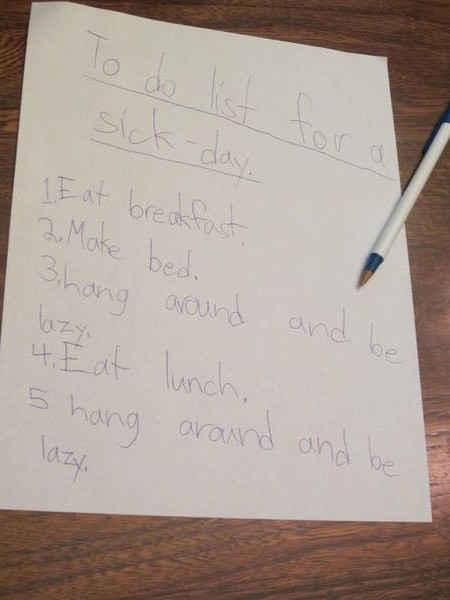 To do list for a
sick-day.
1.Eat breakfast.
2.Make bed.
3.hang around and be
lazy.
4.Eat lunch.
5 hang around and be
lazy.